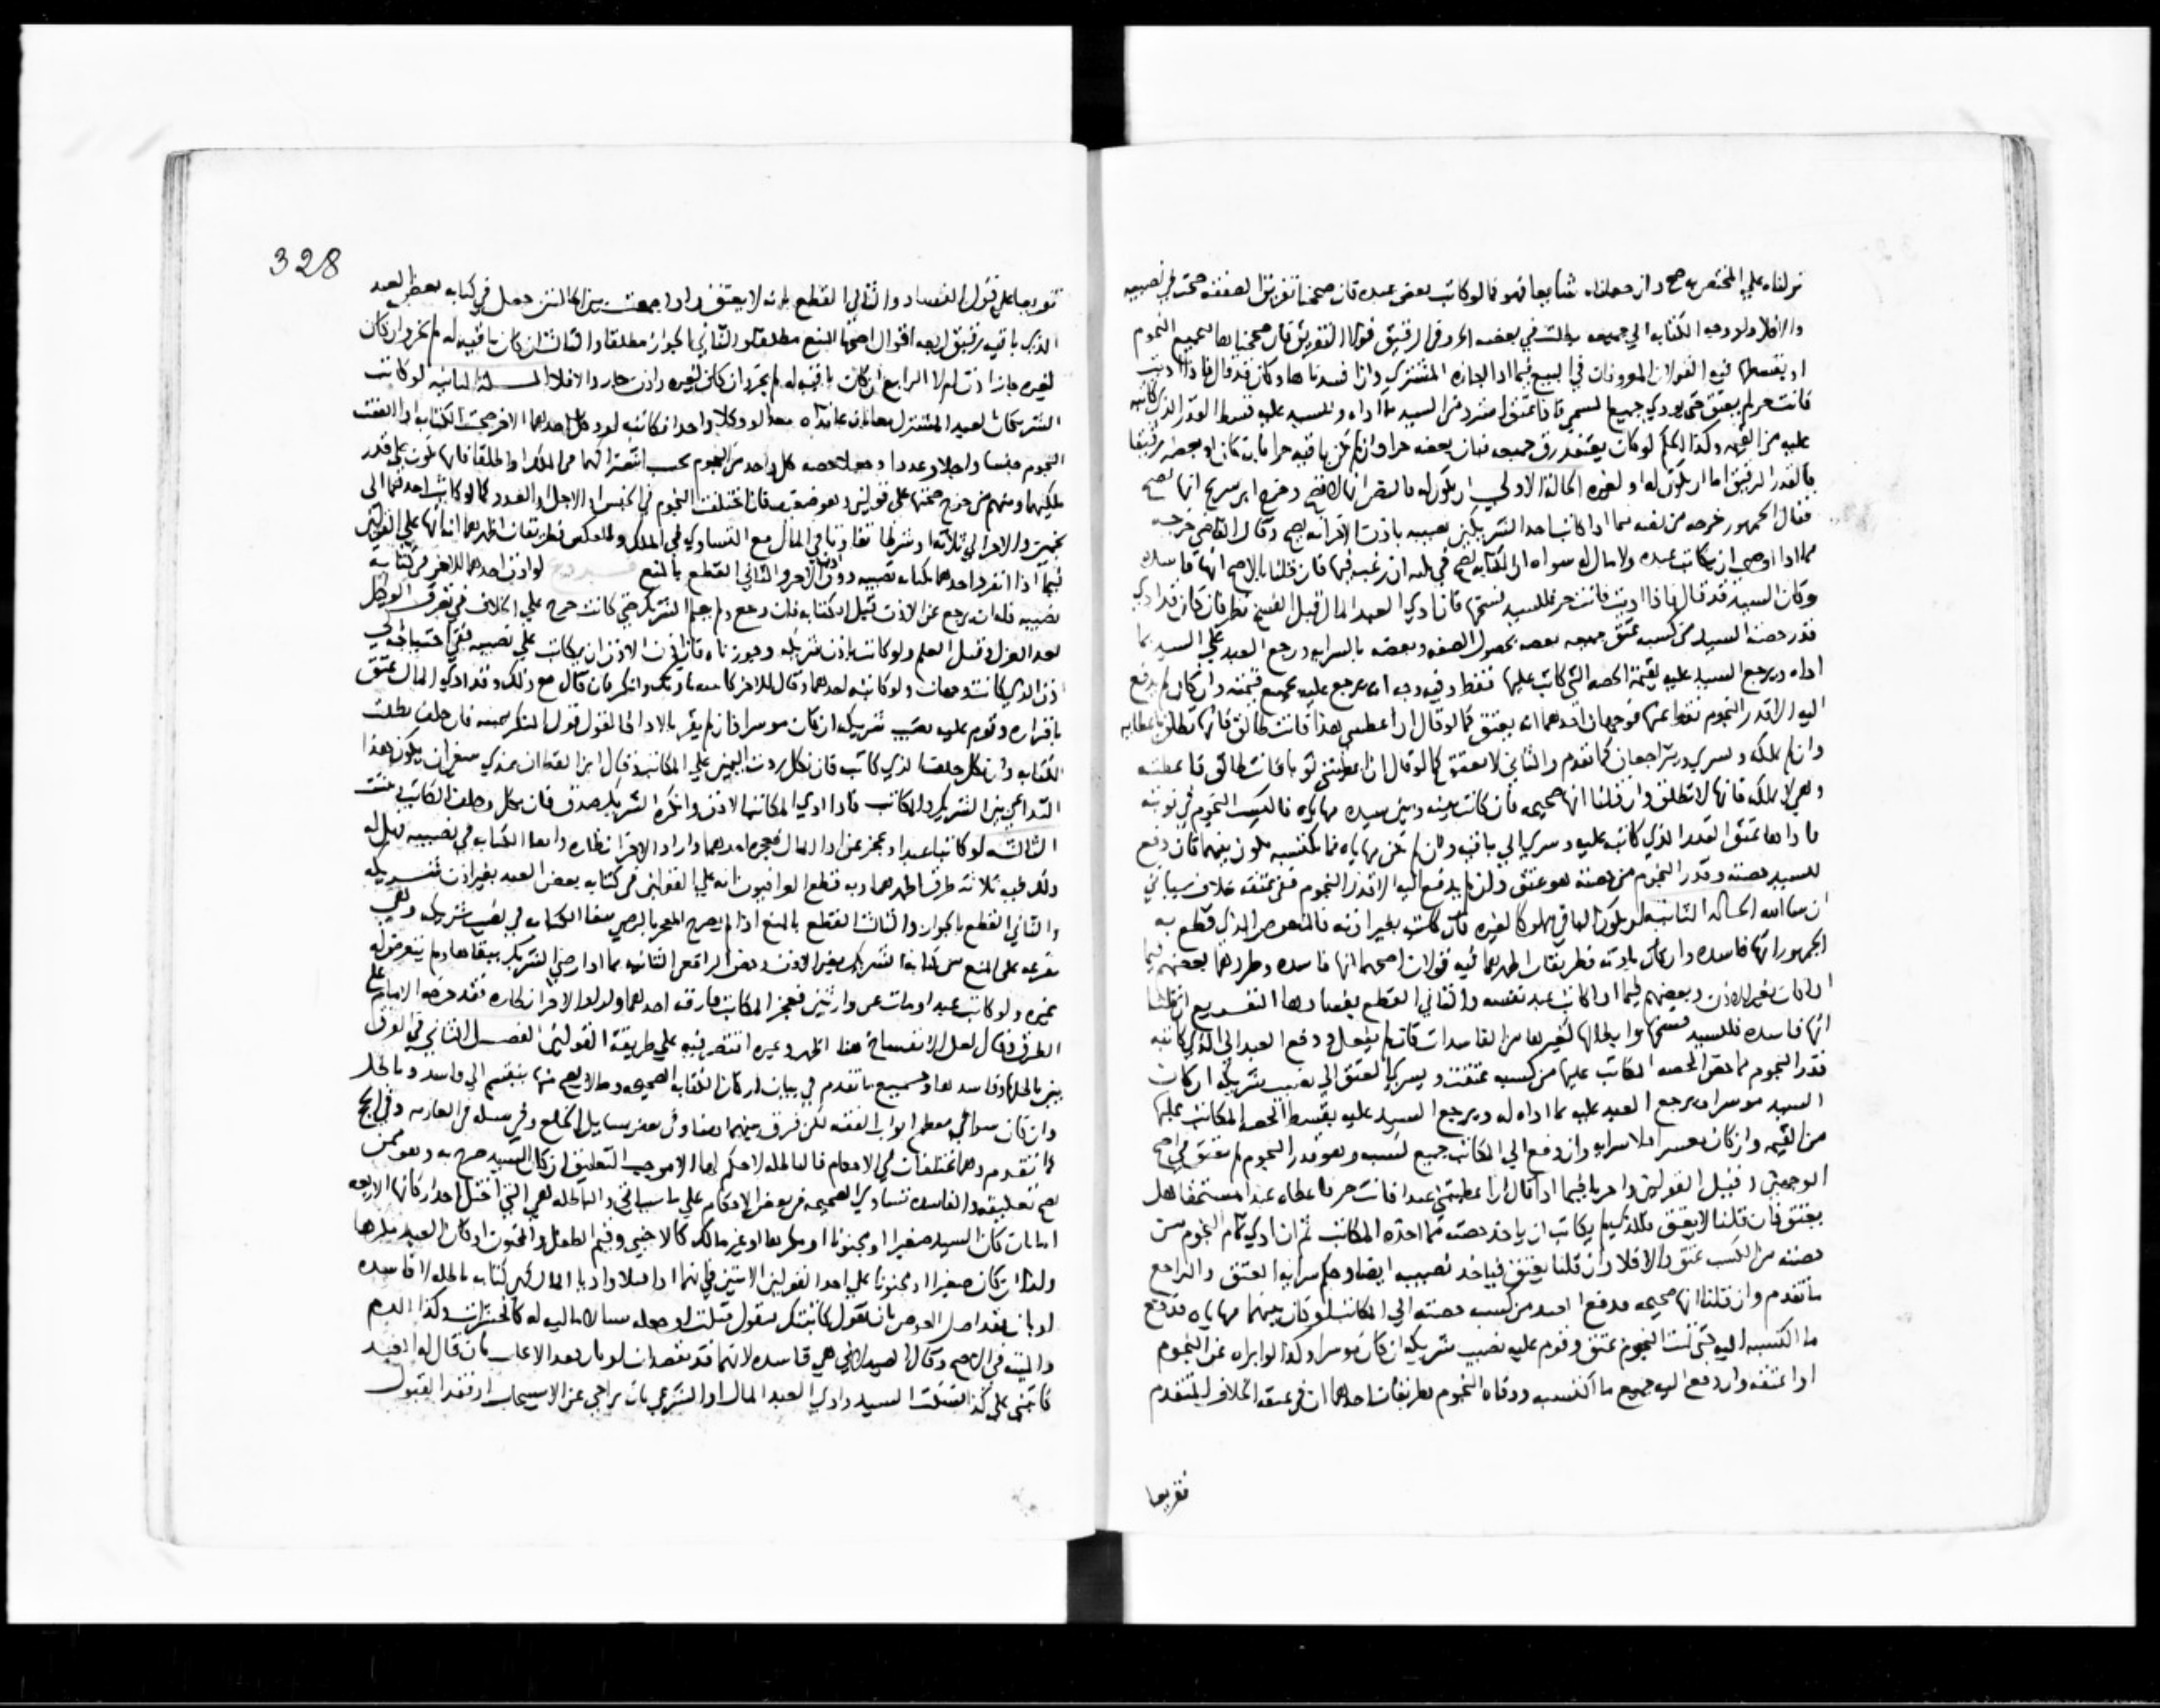 نزلناه على المختص به صح وان جعلناه شايعا فهو كما لو كاتب بعض عبده فان صححنا تفريق الصفقة صحت في نصيبه
والا فلا ولو وجه الكتابة الى جميعه بطلت في بعضه الحر وفي الرقيق قولا التفريق فان صححنا بجميع النجوم
او بقسطها فيه القولان المعروفان في البيع فيما اذا اجازه المشتري وان افسدناها وكان قد قال فاذا اديت
فانت حر لم يعتق حتى يودي جميع المسمى فاذا عتق استرد من السيد ما اداه وللسيد عليه قسط القدر الذي كاتبه
عليه من القيمة وكذا الحكم لو كاتب يعتقد رق جميعه فبان بعضه حرا وان لم يكن باقيه حرا بان كان بعضه رقيقا
فالقدر الرقيق اما ان يكون له او لغيره الحالة الاولى ان يكون له فالنص انها لا تصح وخرج ابن سريج انها تصح
فقال الجمهور خرجه من نصه فيما اذا كاتب احد الشريكين نصيبه باذن الاخر انه يصح وقال القاضي خرجه
مما اذا اوصى ان يكاتب عبده ولا مال له سواه ان الكتابة تصح في ثلثه ان رغب فيها فان قلنا بالاصح انها فاسدة
وكان السيد قد قال فاذا اديت فانت حر فللسيد فسخها فان ادى العبد المال قبل الفسخ نظر فان كان قد ادى
قدر حصة السيد من كسبه عتق جميعه بعضه بحصول الصفة وبعضه بالسراية ورجع العبد على السيد بما
اداه ويرجع السيد عليه بقيمة الحصة التي كاتب عليها فقط وفيه وجه انه يرجع عليه بجميع قيمته وان كان لم يدفع
اليه الا قدر النجوم فقط عنها فوجهان احدهما انه يعتق كما لو قال ان اعطيتني هذا فانت طالق فانها تطلق باعطايه
وان لم تملكه ويسري ويتراجعان كما تقدم والثاني لا يعتق كما لو قال ان اعطيتني ثوبا فانت طالق فاعطته
وهي لا تملكه فانها لا تطلق وان قلنا انها صحيحة فان كانت بينه وبين سيده مهاياة فاكتسب النجوم في نوبته
فاداها عتق القدر الذي كاتب عليه وسرى الى باقيه وان لم تكن مهاياة فما يكتسبه يكون بينهما فان دفع
للسيد حصته وقدر النجوم من حصته هو عتق وان لم يدفع اليه الا قدر النجوم ففي عتقه خلاف سياتي
ان شا الله الحالة الثانية ان يكون الباقي مملوكا لغيره فان كاتب بغير اذنه فالمنصوص الذي قطع به
الجمهور انها فاسدة وان كان باذنه فطريقان اظهرهما فيه قولان اصحهما انها فاسدة وطردهما بعضهم فيما
اذا كان بغير الاذن وبعضهم فيما اذا كاتب عبد نفسه والثاني القطع بفسادها التفريع ان قلنا
انها فاسدة فللسيد فسخها وابطالها كغيرها من الفاسدات فان لم يفعل ودفع العبد الى الذي كاتبه
قدر النجوم مما يخص الحصة المكاتب عليها من كسبه عتقت ويسري العتق الى نصيب شريكه ان كان
السيد موسرا ويرجع العبد عليه بما اداه له ويرجع السيد عليه بقسط الحصة المكاتب عليها
من القيمة وان كان معسرا فلا سراية وان دفع الى المكاتب جميع كسبه وهو قدر النجوم لم يعتق في اصح
الوجهين وقيل القولين واجريا فيما اذا قال ان اعطيتني عبدا فانت حر فاعطاه عبدا مستحقا هل
يعتق فان قلنا لا يعتق فللذي لم يكاتب ان ياخذ حصته مما اخذه المكاتب ثم ان ادى تمام النجوم من
حصته من الكسب عتق والا فلا وان قلنا يعتق فياخذ نصيبه ايضا وحكم سراية العتق والتراجع
ما تقدم وان قلنا انها صحيحة فدفع العبد من كسب حصته الى المكاتب لو كان بينهما مهاياة فدفع
ما اكتسبه اليه حتى تمت النجوم عتق وقوم عليه نصيب شريكه ان كان موسرا وكذا لو ابراه عن النجوم
او اعتقه وان دفع اليه جميع ما اكتسبه ووفاه النجوم فطريقان احدهما ان في عتقه الخلاف المتقدم
تفريعا
328
تفريعا على قول الفساد والثاني القطع بانه لا يعتق واذا جمعت بين الحالتين حصل في كتابة بعض العبد
الذي باقيه رقيق اربعة اقوال اصحها المنع مطلقا والثاني الجواز مطلقا والثالث ان كان باقيه له لم يجز وان كان
لغيره جاز اذن ام لا الرابع ان كان باقيه له لم يجز وان كان لغيره واذن جاز والا فلا المسلة الثانية لو كاتب
الشريكان العبد المشترك معا بان عاقداه معا او وكلا واحدا فكاتبه او وكل احدهما الاخر صحت الكتابة اذا اتفقت
النجوم جنسا واجلا وعددا وجعلا حصة كل واحد من النجوم بحسب اشتراكهما في الملك او اطلقا فانها تكون على قدر
ملكيهما ومنهم من خرج صحتها على قولين وهو ضعيف فان اختلفت النجوم في الجنس او الاجل او العدد كما لو كاتب احدهما الى
نجمين والاخر الى ثلاثة او شرطا تفاوتا في المال مع التساوي في الملك وبالعكس فطريقان اظهرهما انها على القولين
فيما اذا انفرد احدهما بكتابة نصيبه دون اذن الاخر والثاني القطع بالمنع لو اذن احدهما للاخر في كتابة
نصيبه فله ان يرجع عن الاذن قبل الكتابة فان رجع ولم يعلم الشريك حتى كاتب خرج على الخلاف في تصرف الوكيل
بعد العزل وقبل العلم ولو كاتب باذن شريكه وجوزناه فان اذن الاذن ان يكاتب على نصيبه ففي احتياجه الى
اذن الذي كاتب وجهان ولو كاتبه احدهما وقال للاخر كاتبته باذنك وانكر فان قال مع ذلك وقد ادى المال عتق
باقراره وقوم عليه نصيب شريكه ان كان موسرا فان لم يقر بالادا فالقول قول المنكر بيمينه فان حلف بطلت
الكتابة وان نكل حلف الذي كاتب فان نكل ردت اليمين على المكاتب وقال ابن القطان عندي ينبغي ان يكون هذا
التداعي بين الشريك والمكاتب فاذا ادعى المكاتب الاذن وانكره الشريك صدق فان نكل وحلف المكاتب ثبتت
الثالثة لو كاتبا عبدا وعجز عن اداء المال فعجزه احدهما واراد الاخر انظاره وابقا الكتابة في نصيبه فهل له
ذلك فيه ثلاثة طرق اظهرها وبه قطع العراقيون انه على القولين في كتابة بعض العبد بغير اذن شريكه
والثاني القطع بالجواز والثالث القطع بالمنع اذا لم يصرح المعجز بالرضى ببقا الكتابة في نصيب شريكه وهي
مفرعة على المنع من كتابة الشريك بغير الاذن وخص الرافعي الثانية بما اذا رضي الشريك ببقائها ولم يتعرض له
غيره ولو كاتب عبدا ومات عن وارثين فعجز المكاتب فارقه احدهما واراد الاخر انظاره فقد خرجه الامام على
الطرق وقال لعل الانفساخ هنا اظهر وغيره اقتصر فيه على طريقة القولين الفصل الثاني في الفرق
بين باطلها وفاسدها وجميع ما تقدم في بيان اركان الكتابة الصحيحة وما لا يصح منها ينقسم الى فاسد وباطل
وان كان سوا في معظم ابواب الفقه لكن فرق بينهما هنا وفي بعض مسايل الخلع وفي مسلة في العارية وفي الحج
كما تقدم وهما مختلفان في الاحكام فالباطلة لا حكم لها الا موجب التعليق ان كان السيد صرح به وهو ممن
يصح تعليقه والفاسدة تساوي الصحيحة في بعض الاحكام على ما سياتي والباطلة هي التي اختل احد اركانها الاربعة
اما بان كان السيد صغيرا او مجنونا او مكرها او غير مالك كالاجنبي وقيم الطفل والمجنون او كان العبد مكرها
وكذا ان كان صغيرا او مجنونا على احد القولين الاتيين في انهما اذا قبلا واديا المال هي كتابة باطلة او فاسدة
او بان فقد اصل العوض بان يقول كاتبتك فيقول قبلت او جعله مما لا مالية له كالحشرات وكذا الدم
والميتة في الاصح وقال الصيدلاني هي فاسدة لانهما قد يقصدان او بان بعد الايجاب بان قال له العبد
كاتبني على كذا فقبلت السيد وادى العبد المال او الشرعي بان تراخى عن الاستيجاب او فقد القبول